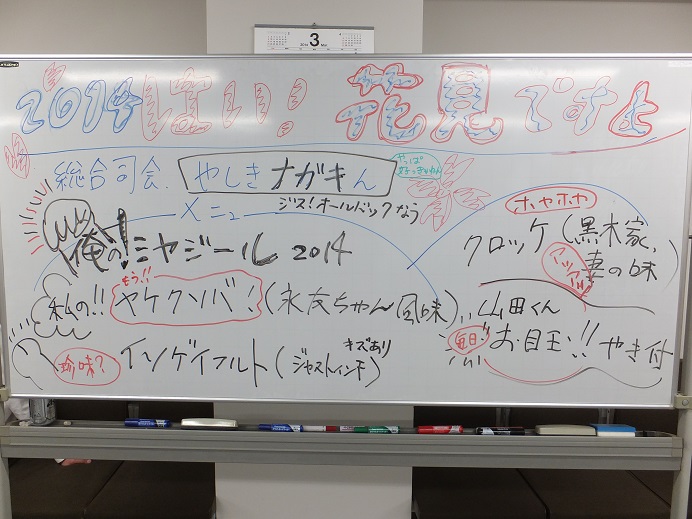 3
2014 はい! 花見ですよ
総合司会. やしきナガキん
やっぱ
メニュー
ジス!オールバックなう
俺の!ミヤジール 2014
ホヤホヤ
クロッケ(黒木家、
妻の味
アツアツ
私の!!
もう!!
ヤケクソバ!(永友ちゃん風味)
山田くん
毎日!
お目玉!!やき付
珍味?
イソゲイフルト(ジャストインチ)
キズあり